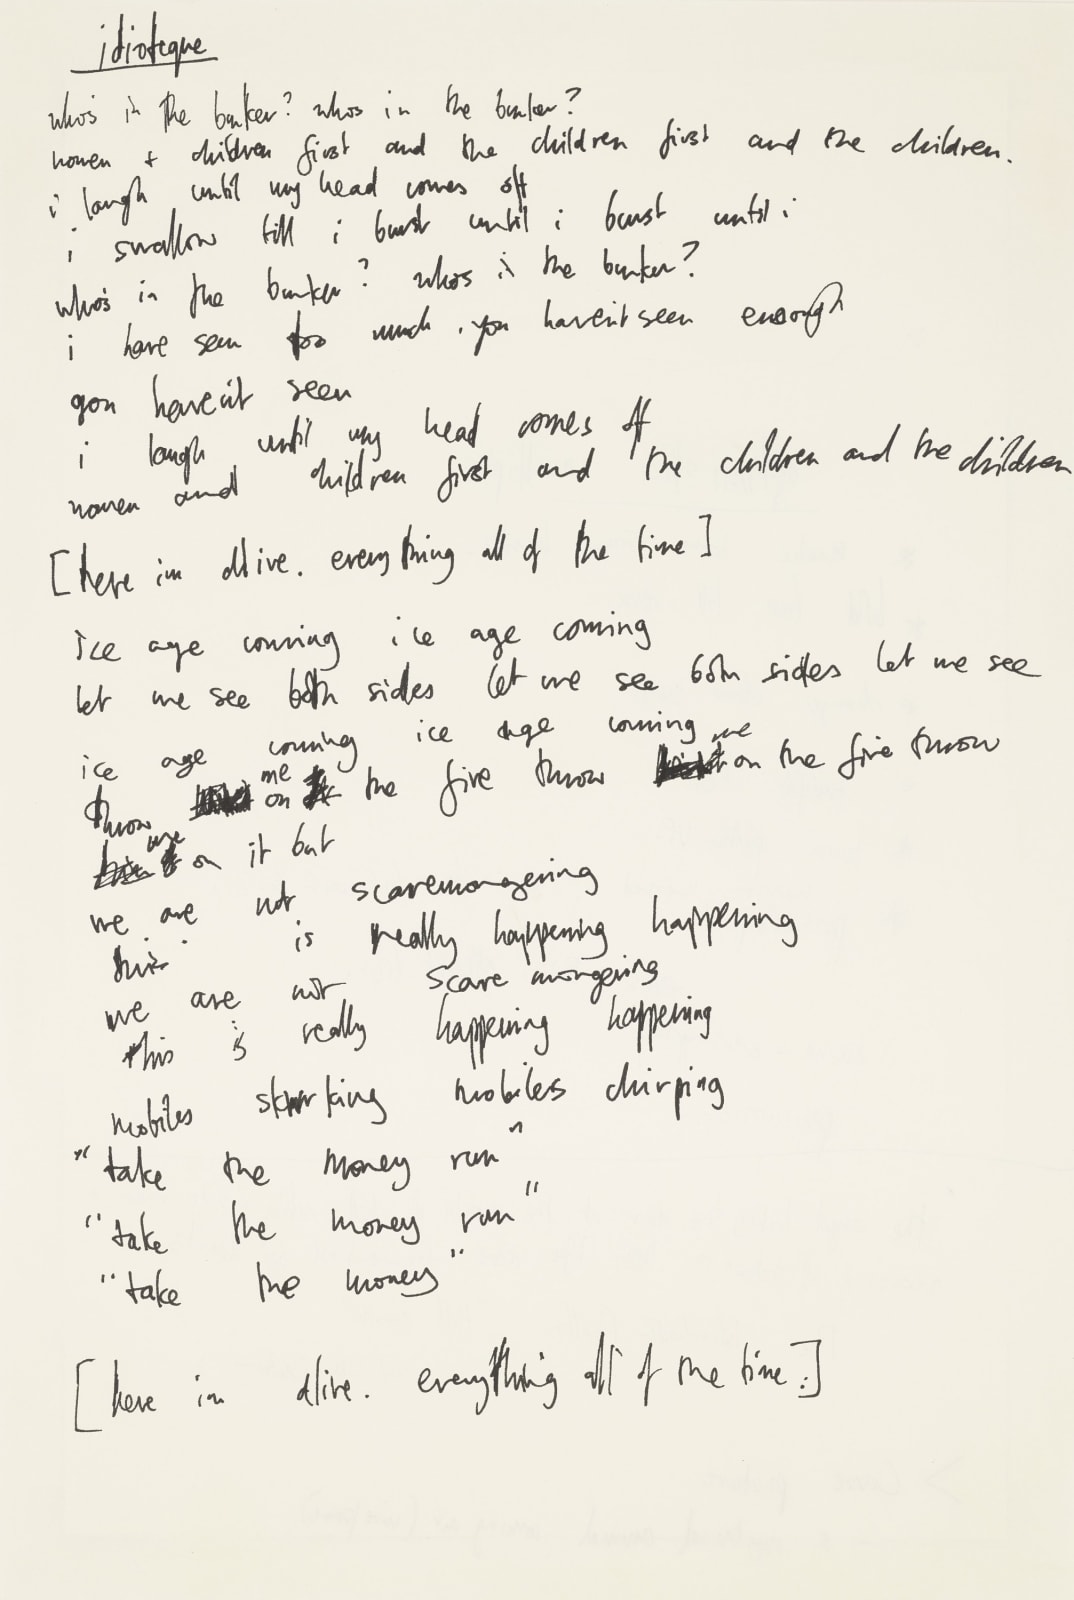 idioteque
who's in the bunker? whos in the bunker?
women + children first and the children first and the children.
i laugh until my head comes off
i swallow till i burst until i burst until i
who's in the bunker? whos in the bunker?
i have seen too much. you havent seen enough
you havent seen
i laugh until my head comes off
women and children first and the children and the children
[here im alive. everything all of the time]
ice age coming ice age coming
let me see both sides let me see both sides let me see
ice age coming ice age coming
throw me on the fire throw me on the fire throw
me on it but
we are not scaremongering
this is really happening happening
we are not scare mongering
this is really happening happening
mobiles skwrking mobiles chirping
"take the money run"
"take the money run"
"take the money"
[here im alive. everything all of the time.]